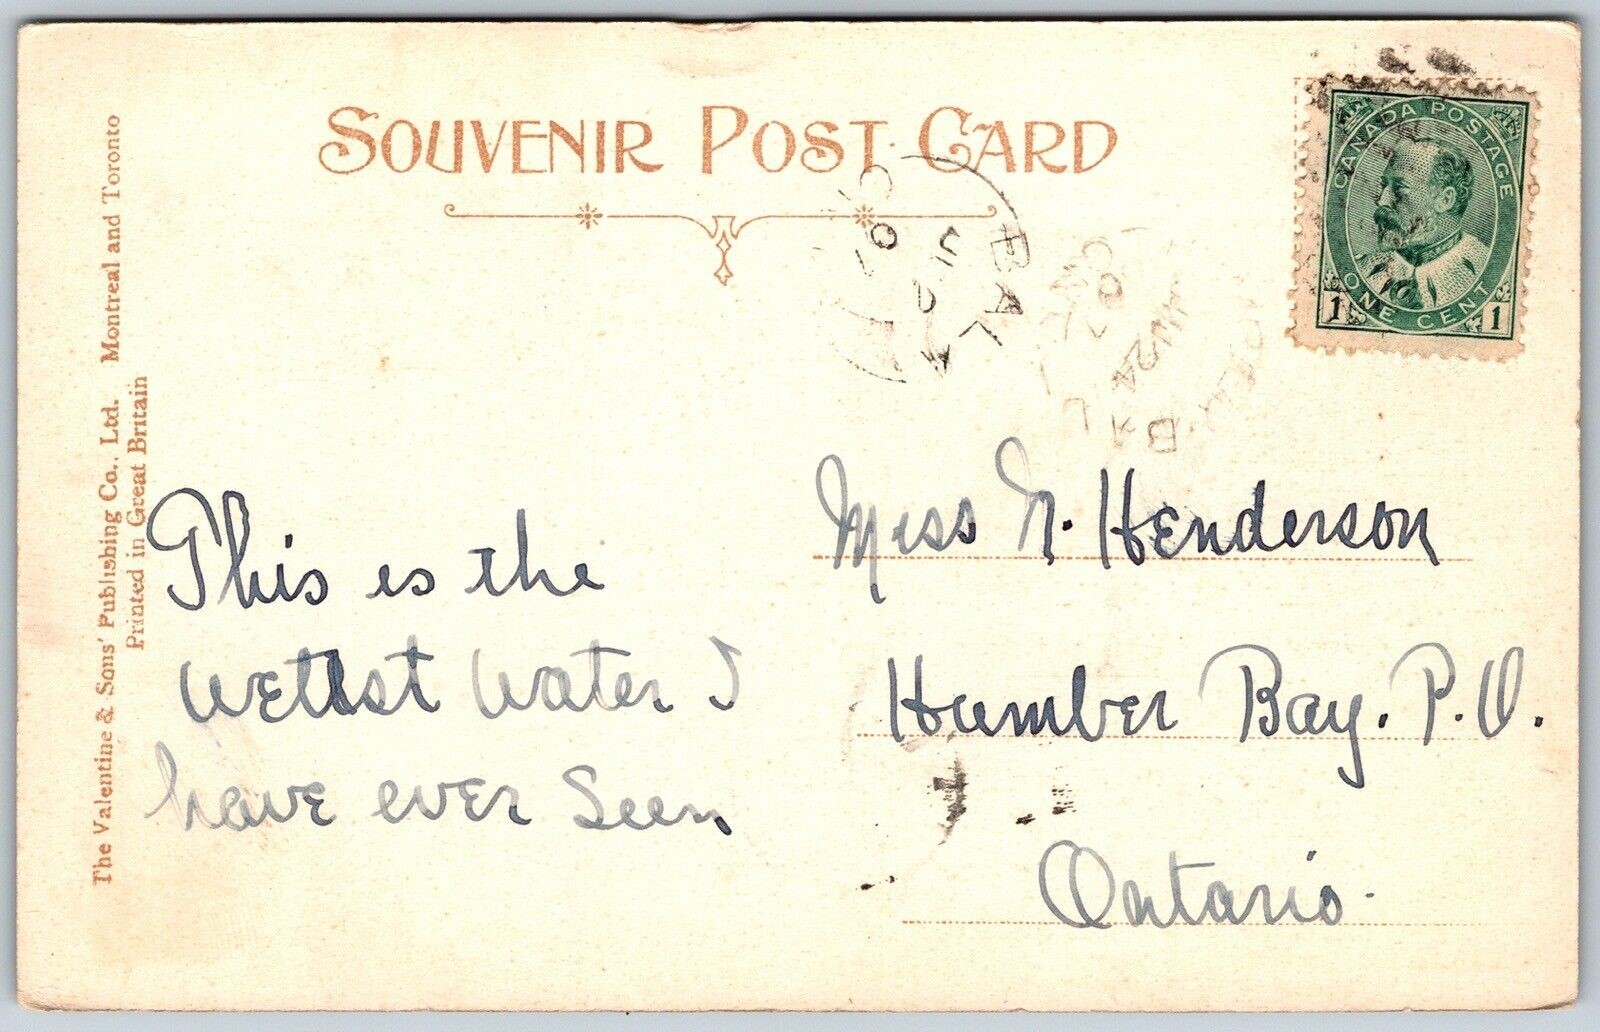 SOUVENIR POST CARD
CANADA POSTAGE
1 ONE CENT 1
BALA
07
JU 24
BAL
The Valentine & Sons' Publishing Co., Ltd. Montreal and Toronto
Printed in Great Britain
This is the
wettest water I
have ever seen
Miss N. Henderson
Humber Bay. P.O.
Ontario.